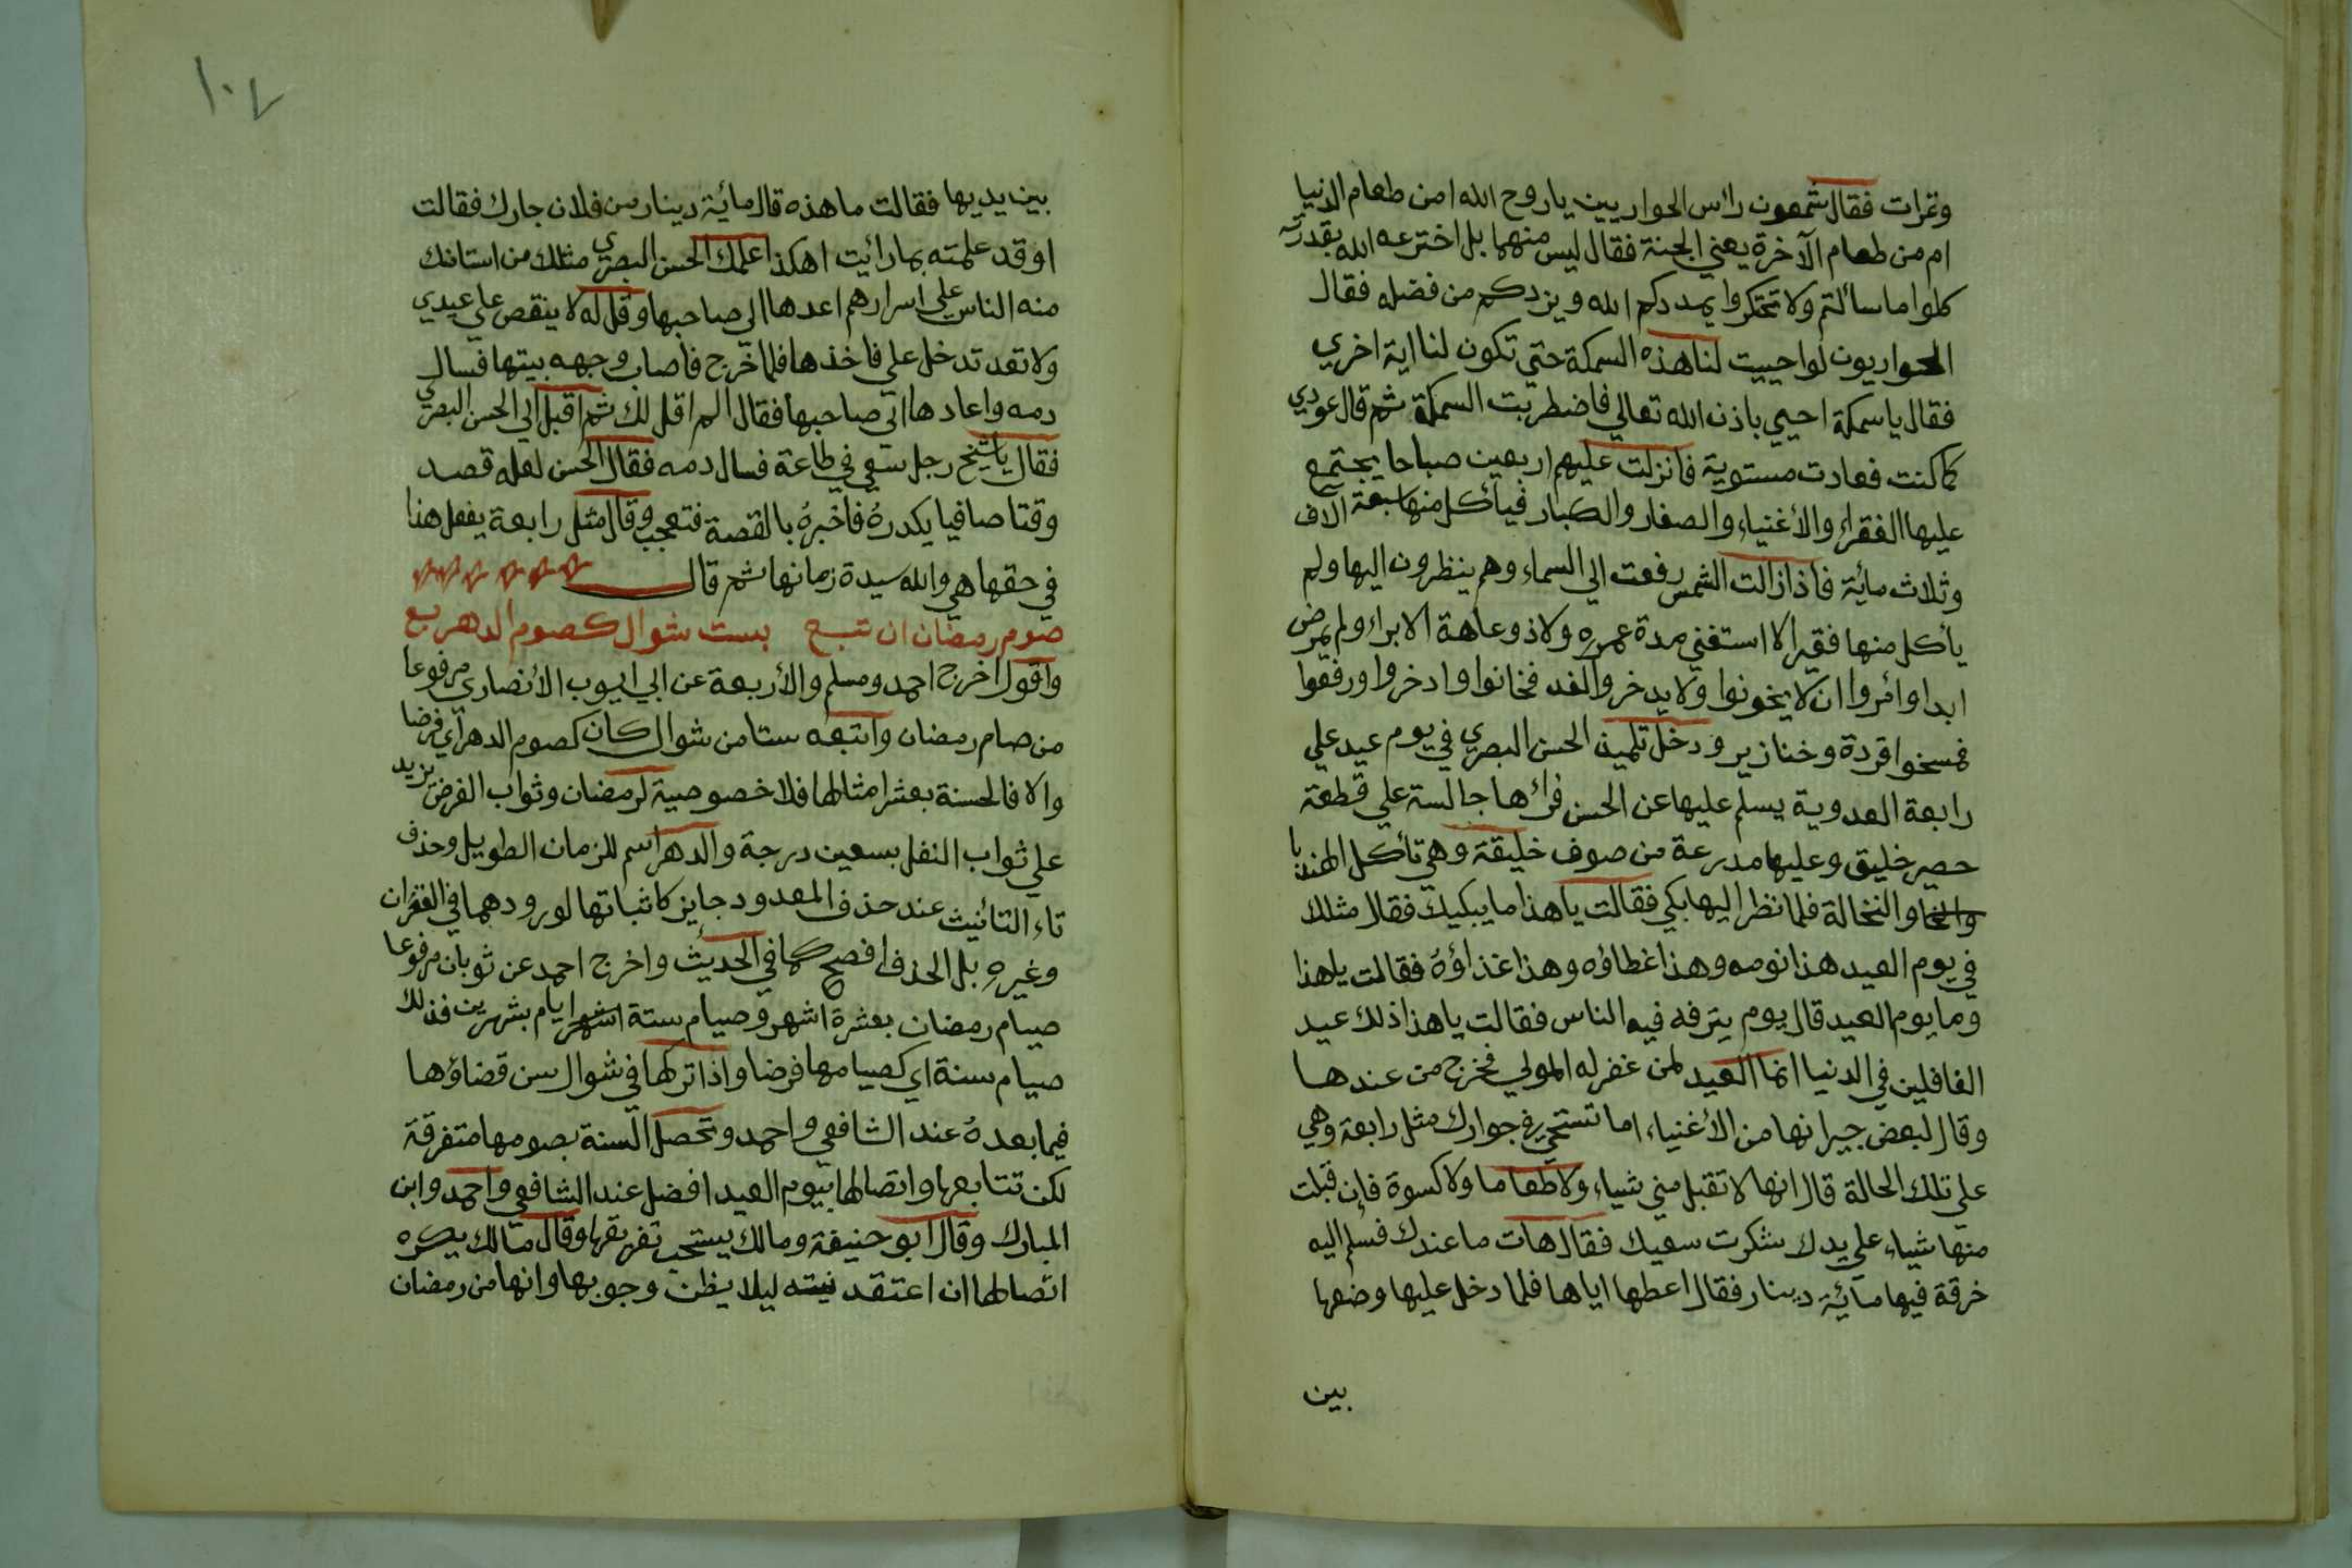 وتمرات فقال شمعون رأس الحواريين ياروح الله امن طعام الدنيا
ام من طعام الآخرة يعني الجنة فقال ليس منهما بل اخترعه الله بقدرته
كلوا ما سألتم ولا تحتكروا يمددكم الله ويزدكم من فضله فقال
الحواريون لو احييت لنا هذه السمكة حتي تكون لنا اية اخري
فقال ياسمكة احيي باذن الله تعالي فاضطربت السمكة ثم قال عودي
كما كنت فعادت مستوية فانزلت عليهم اربعين صباحا يجتمع
عليها الفقراء والأغنياء والصغار والكبار فيأكل منها سبعة آلاف
وثلاث مائة فاذا زالت الشمس رفعت الي السماء وهم ينظرون اليها ولم
يأكل منها فقير الا استغني مدة عمره ولا ذو عاهة الا برا ولم يمرض
ابدا وامروا ان لا يخونوا ولا يدخروا لغد فخانوا وادخروا ورفعوا
فمسخوا قردة وخنازير ودخل تلميذ الحسن البصري في يوم عيد علي
رابعة العدوية يسلم عليها عن الحسن فرأها جالسة علي قطعة
حصير خليق وعليها مدرعة من صوف خليقة وهي تأكل الهندبا
والنخالة فلما نظر اليها بكي فقالت ياهذا ما يبكيك فقال مثلك
في يوم العيد هذا نومه وهذا غطاؤه وهذا غذاؤه فقالت ياهذا
وما يوم العيد قال يوم يترفه فيه الناس فقالت ياهذا ذلك عيد
الغافلين في الدنيا انما العيد لمن غفر له المولي فخرج من عندها
وقال لبعض جيرانها من الأغنياء اما تستحي في جوارك مثل رابعة وهي
علي تلك الحالة قال انها لا تقبل مني شياء ولا طعاما ولا كسوة فإن قبلت
منها شياء علي يدك شكرت سعيك فقال هات ما عندك فسلم اليه
خرقة فيها مائة دينار فقال اعطها اياها فلما دخل عليها وضعها
بين
١٠٤
بين يديها فقالت ما هذه قال مائة دينار من فلان جارك فقالت
او قد علمته بما رائيت اهكذا علمك الحسن البصري مثلك من استانك
منه الناس علي اسرارهم اعدها الي صاحبها وقل له لا ينقص علي عيدي
ولا تعد تدخل علي فاخذها فلما خرج فأصاب وجهه بيتها فسال
دمه واعادها الي صاحبها فقال الم اقل لك ثم اقبل الي الحسن البصري
فقال ياشيخ رجل سعي في طاعة فسال دمه فقال الحسن لعله قصد
وقتا صافيا يكدره فأخبره بالقصة فتعجب وقال مثل رابعة يفعل هذا
في حقها هي والله سيدة زمانها ثم قال
صوم رمضان ان تتبع بست شوال كصوم الدهر بع
واقول اخرج احمد ومسلم والأربعة عن ابي ايوب الأنصاري مرفوعا
من صام رمضان واتبعه ستا من شوال كان كصوم الدهر أي فرضا
والا فالحسنة بعشر امثالها فلا خصوصية لرمضان وثواب الفرض يزيد
علي ثواب النفل بسبعين درجة والدهر اسم للزمان الطويل وحذف
تاء التأنيث عند حذف المعدود جايز كاثباتها لورودهما في القران
وغيره بل الحذف افصح كما في الحديث واخرج احمد عن ثوبان مرفوعا
صيام رمضان بعشرة اشهر وصيام ستة اشهر ايام بشهرين فذلك
صيام سنة اي كصيامها فرضا واذا تركها في شوال سن قضاؤها
فيما بعده عند الشافعي واحمد وتحصل السنة بصومها متفرقة
لكن تتابعها واتصالها بيوم العيد افضل عند الشافعي واحمد وابن
المبارك وقال ابو حنيفة ومالك يستحب تفريقها وقال مالك يكره
اتصالها ان اعتقد ليلا يظن وجوبها وانها من رمضان